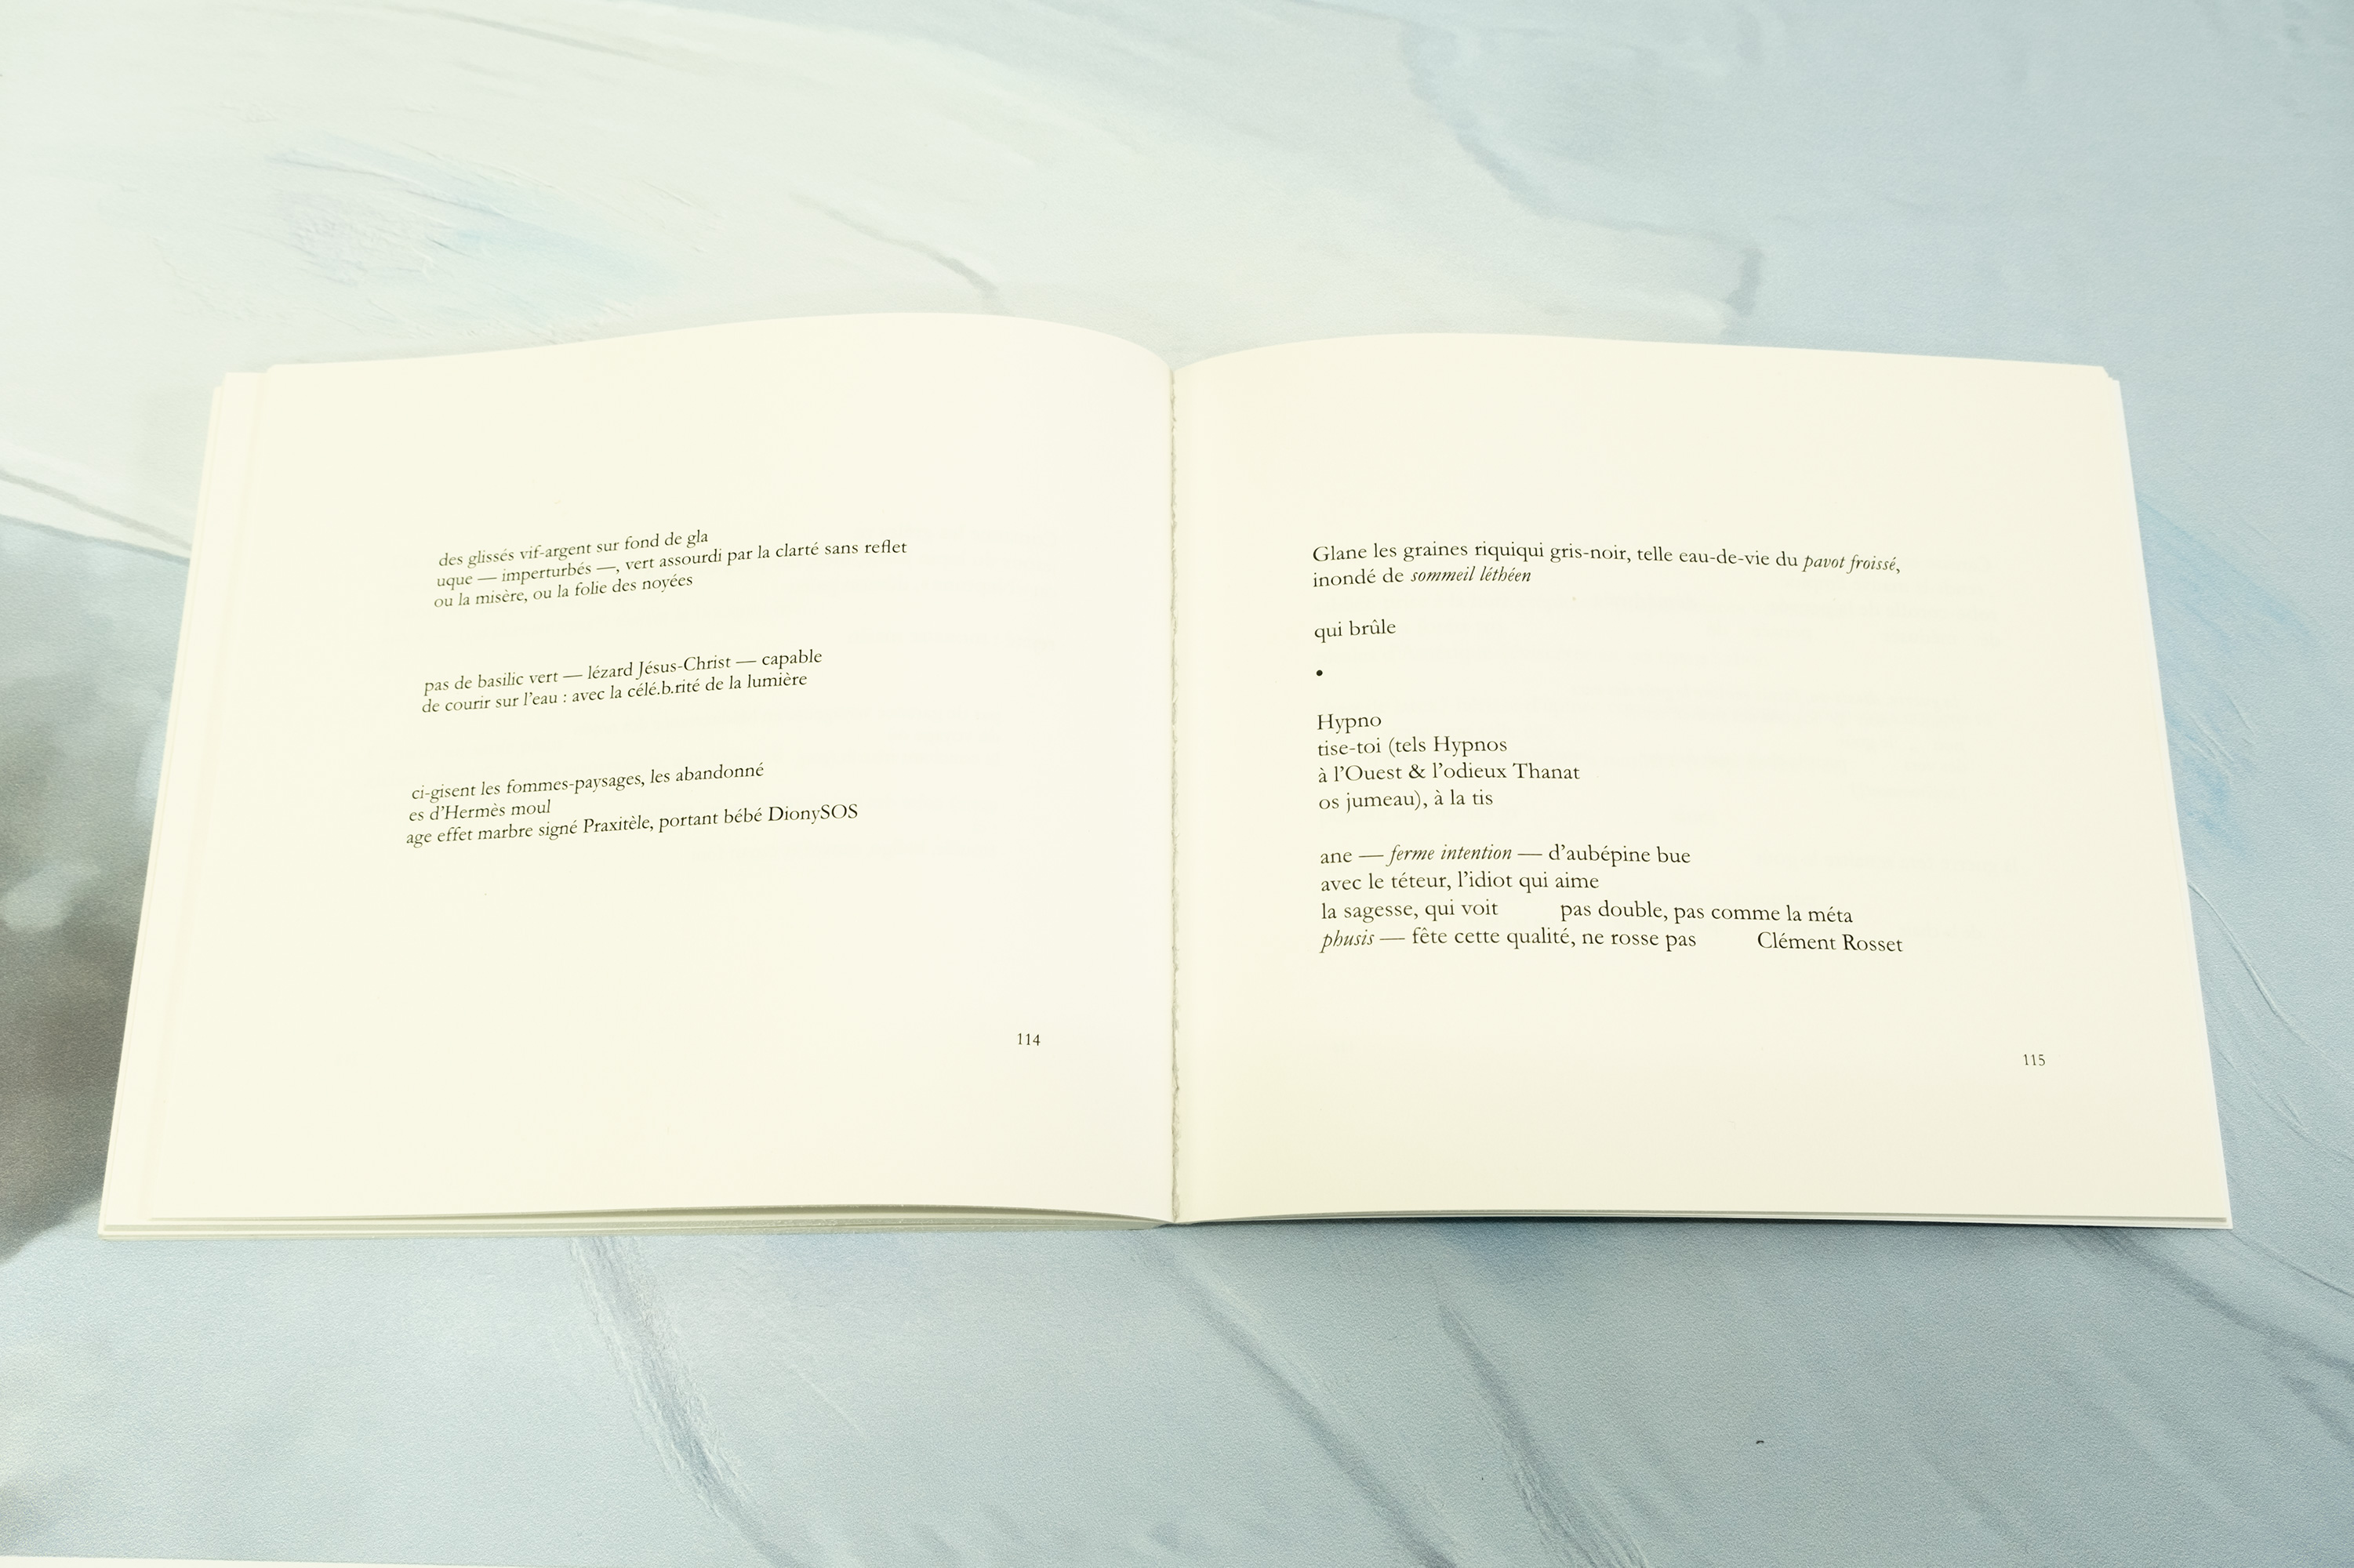 des glissés vif-argent sur fond de gla
uque — imperturbés —, vert assourdi par la clarté sans reflet
ou la misère, ou la folie des noyées
pas de basilic vert — lézard Jésus-Christ — capable
de courir sur l’eau : avec la célé.b.rité de la lumière
ci-gisent les fommes-paysages, les abandonné
es d’Hermès moul
age effet marbre signé Praxitèle, portant bébé DionySOS
114
Glane les graines riquiqui gris-noir, telle eau-de-vie du pavot froissé,
inondé de sommeil léthéen
qui brûle
•
Hypno
tise-toi (tels Hypnos
à l’Ouest & l’odieux Thanat
os jumeau), à la tis
ane — ferme intention — d’aubépine bue
avec le téteur, l’idiot qui aime
la sagesse, qui voit pas double, pas comme la méta
phusis — fête cette qualité, ne rosse pas Clément Rosset
115